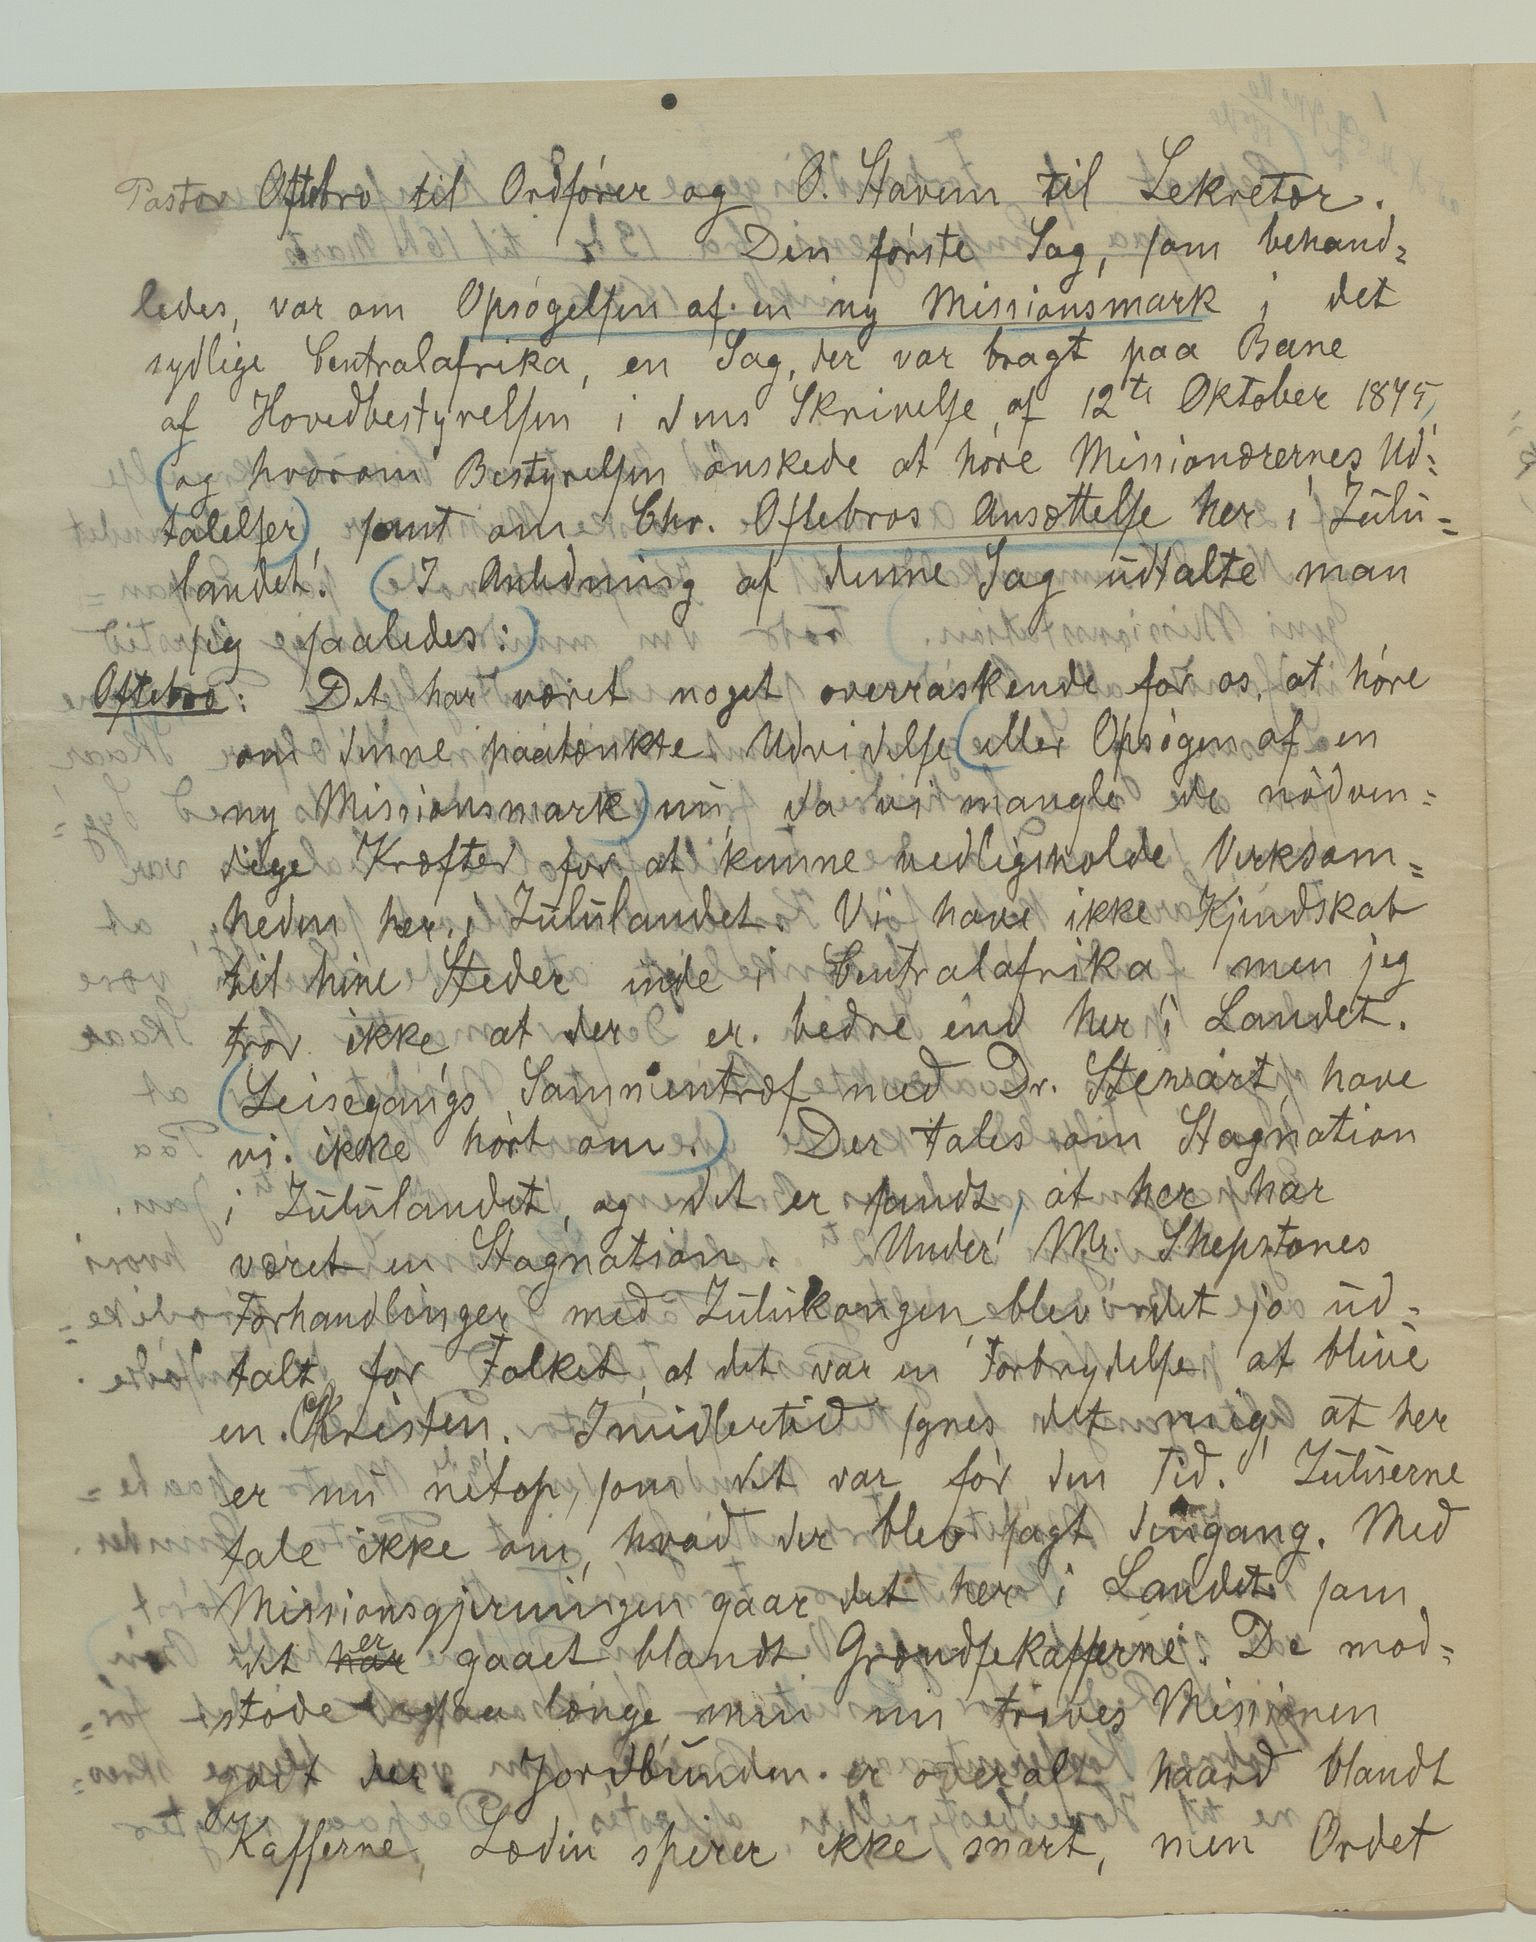 Pastor Oftebro til Ordfører og O. Stavem til Sekretær.
Den første Sag, som behand=
ledes, var om Opsøgelsen af en ny Missionsmark i det
sydlige Centralafrika, en Sag, der var bragt paa Bane
af Hovedbestyrelsen i dens Skrivelse af 12te Oktober 1875,
(og hvorom Bestyrelsen ønskede at høre Missionærernes Ud=
talelser), samt om Chr. Oftebros Ansættelse her i Zülü=
landet. (I Anledning af denne Sag üdtalte man
sig saaledes:)
Oftebro: Det har været noget overraskende for os, at høre
om denne paatænkte Udvidelse (eller Opsøgen af en
ny Missionsmark) nü, da vi mangle de nødven=
dige Kræfter for at kunne vedligeholde Virksom=
heden her i Zülülandet. Vi have ikke Kjendskab
til hine Steder inde i Centralafrika men jeg
tror ikke at der er bedre end her i Landet.
(Leisegangs Sammentræf med Dr. Stewart, have
vi ikke hørt om.) Der tales om Stagnation
i Zülülandet, og det er sandt, at her har
været en Stagnation. Under Mr. Shepstones
Forhandlinger med Zülükongen, blev det jo üd=
talt for Folket, at det var en Forbrydelse at blive
en Kristen. Imidlertid synes det mig, at her
er nü netop, som det var før den Tid. Zülüerne
tale ikke om, hvad der blev sagt dengang. Med
Missionsgjerningen gaar det her i Landet som
det har er gaaet blandt Grændsekafferne. De mod=
stode saa længe men nu trives Missionen
godt der. Jordbünden er overalt haard blandt
Kafferne, Sæden spirer ikke snart, men Ordet